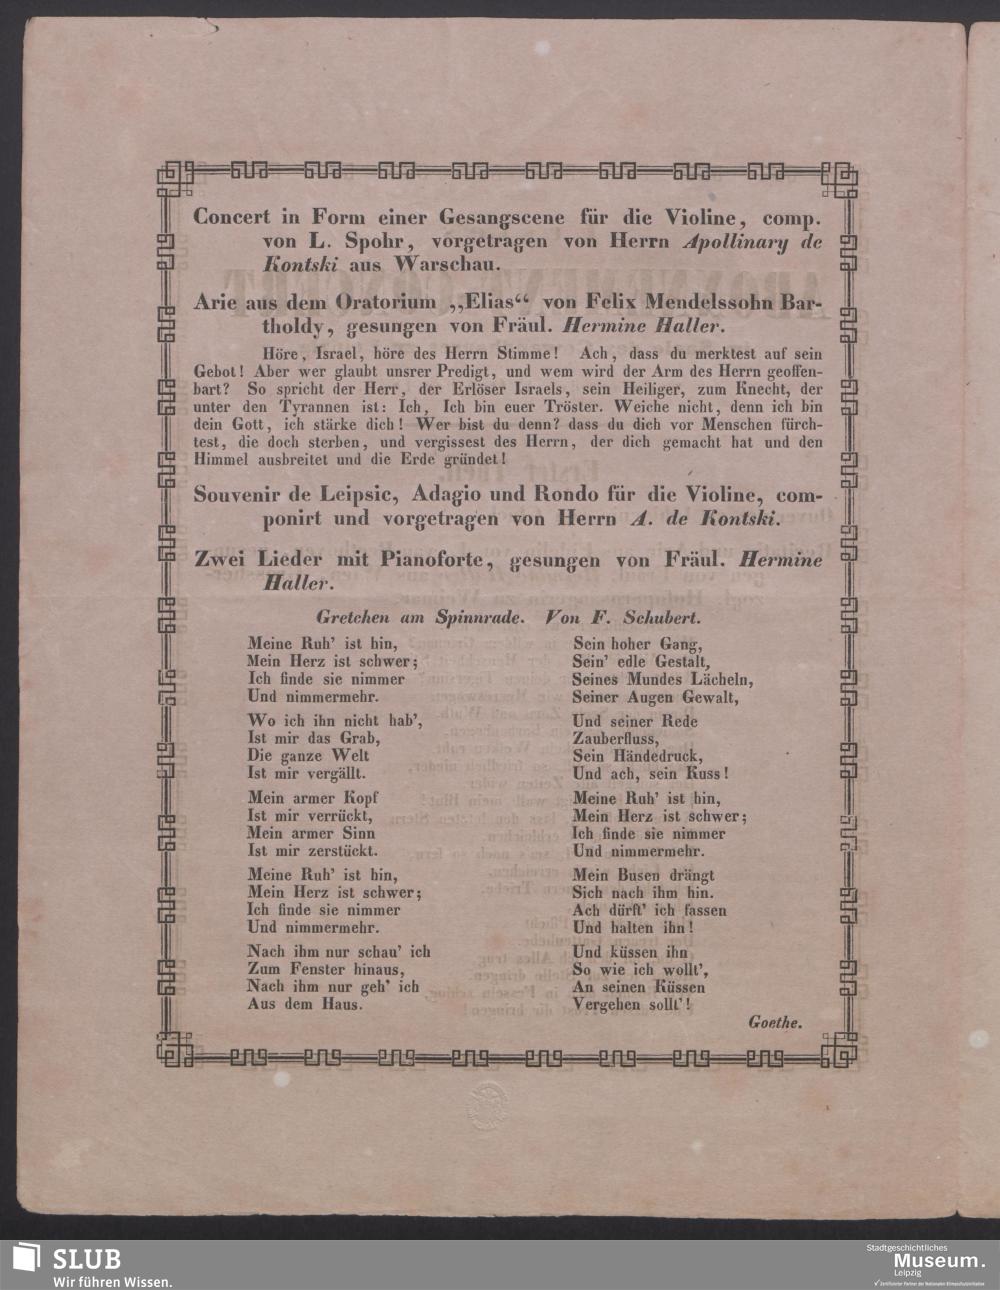 Concert in Form einer Gesangscene für die Violine, comp.
von L. Spohr, vorgetragen von Herrn Apollinary de
Kontski aus Warschau.
Arie aus dem Oratorium „Elias“ von Felix Mendelssohn Bar-
tholdy, gesungen von Fräul. Hermine Haller.
Höre, Israel, höre des Herrn Stimme! Ach, dass du merktest auf sein
Gebot! Aber wer glaubt unsrer Predigt, und wem wird der Arm des Herrn geoffen-
bart? So spricht der Herr, der Erlöser Israels, sein Heiliger, zum Knecht, der
unter den Tyrannen ist: Ich, Ich bin euer Tröster. Weiche nicht, denn ich bin
dein Gott, ich stärke dich! Wer bist du denn? dass du dich vor Menschen fürch-
test, die doch sterben, und vergissest des Herrn, der dich gemacht hat und den
Himmel ausbreitet und die Erde gründet!
Souvenir de Leipsic, Adagio und Rondo für die Violine, com-
ponirt und vorgetragen von Herrn A. de Kontski.
Zwei Lieder mit Pianoforte, gesungen von Fräul. Hermine
Haller.
Gretchen am Spinnrade. Von F. Schubert.
Meine Ruh’ ist hin,
Mein Herz ist schwer;
Ich finde sie nimmer
Und nimmermehr.
Wo ich ihn nicht hab’,
Ist mir das Grab,
Die ganze Welt
Ist mir vergällt.
Mein armer Kopf
Ist mir verrückt,
Mein armer Sinn
Ist mir zerstückt.
Meine Ruh’ ist hin,
Mein Herz ist schwer;
Ich finde sie nimmer
Und nimmermehr.
Nach ihm nur schau’ ich
Zum Fenster hinaus,
Nach ihm nur geh’ ich
Aus dem Haus.
Sein hoher Gang,
Sein’ edle Gestalt,
Seines Mundes Lächeln,
Seiner Augen Gewalt,
Und seiner Rede
Zauberfluss,
Sein Händedruck,
Und ach, sein Kuss!
Meine Ruh’ ist hin,
Mein Herz ist schwer;
Ich finde sie nimmer
Und nimmermehr.
Mein Busen drängt
Sich nach ihm hin.
Ach dürft’ ich fassen
Und halten ihn!
Und küssen ihn
So wie ich wollt’,
An seinen Küssen
Vergehen sollt’!
Goethe.
SLUB
Wir führen Wissen.
Stadtgeschichtliches
Museum.
Leipzig
Zertifizierter Partner der Nationalen Klimaschutzinitiative